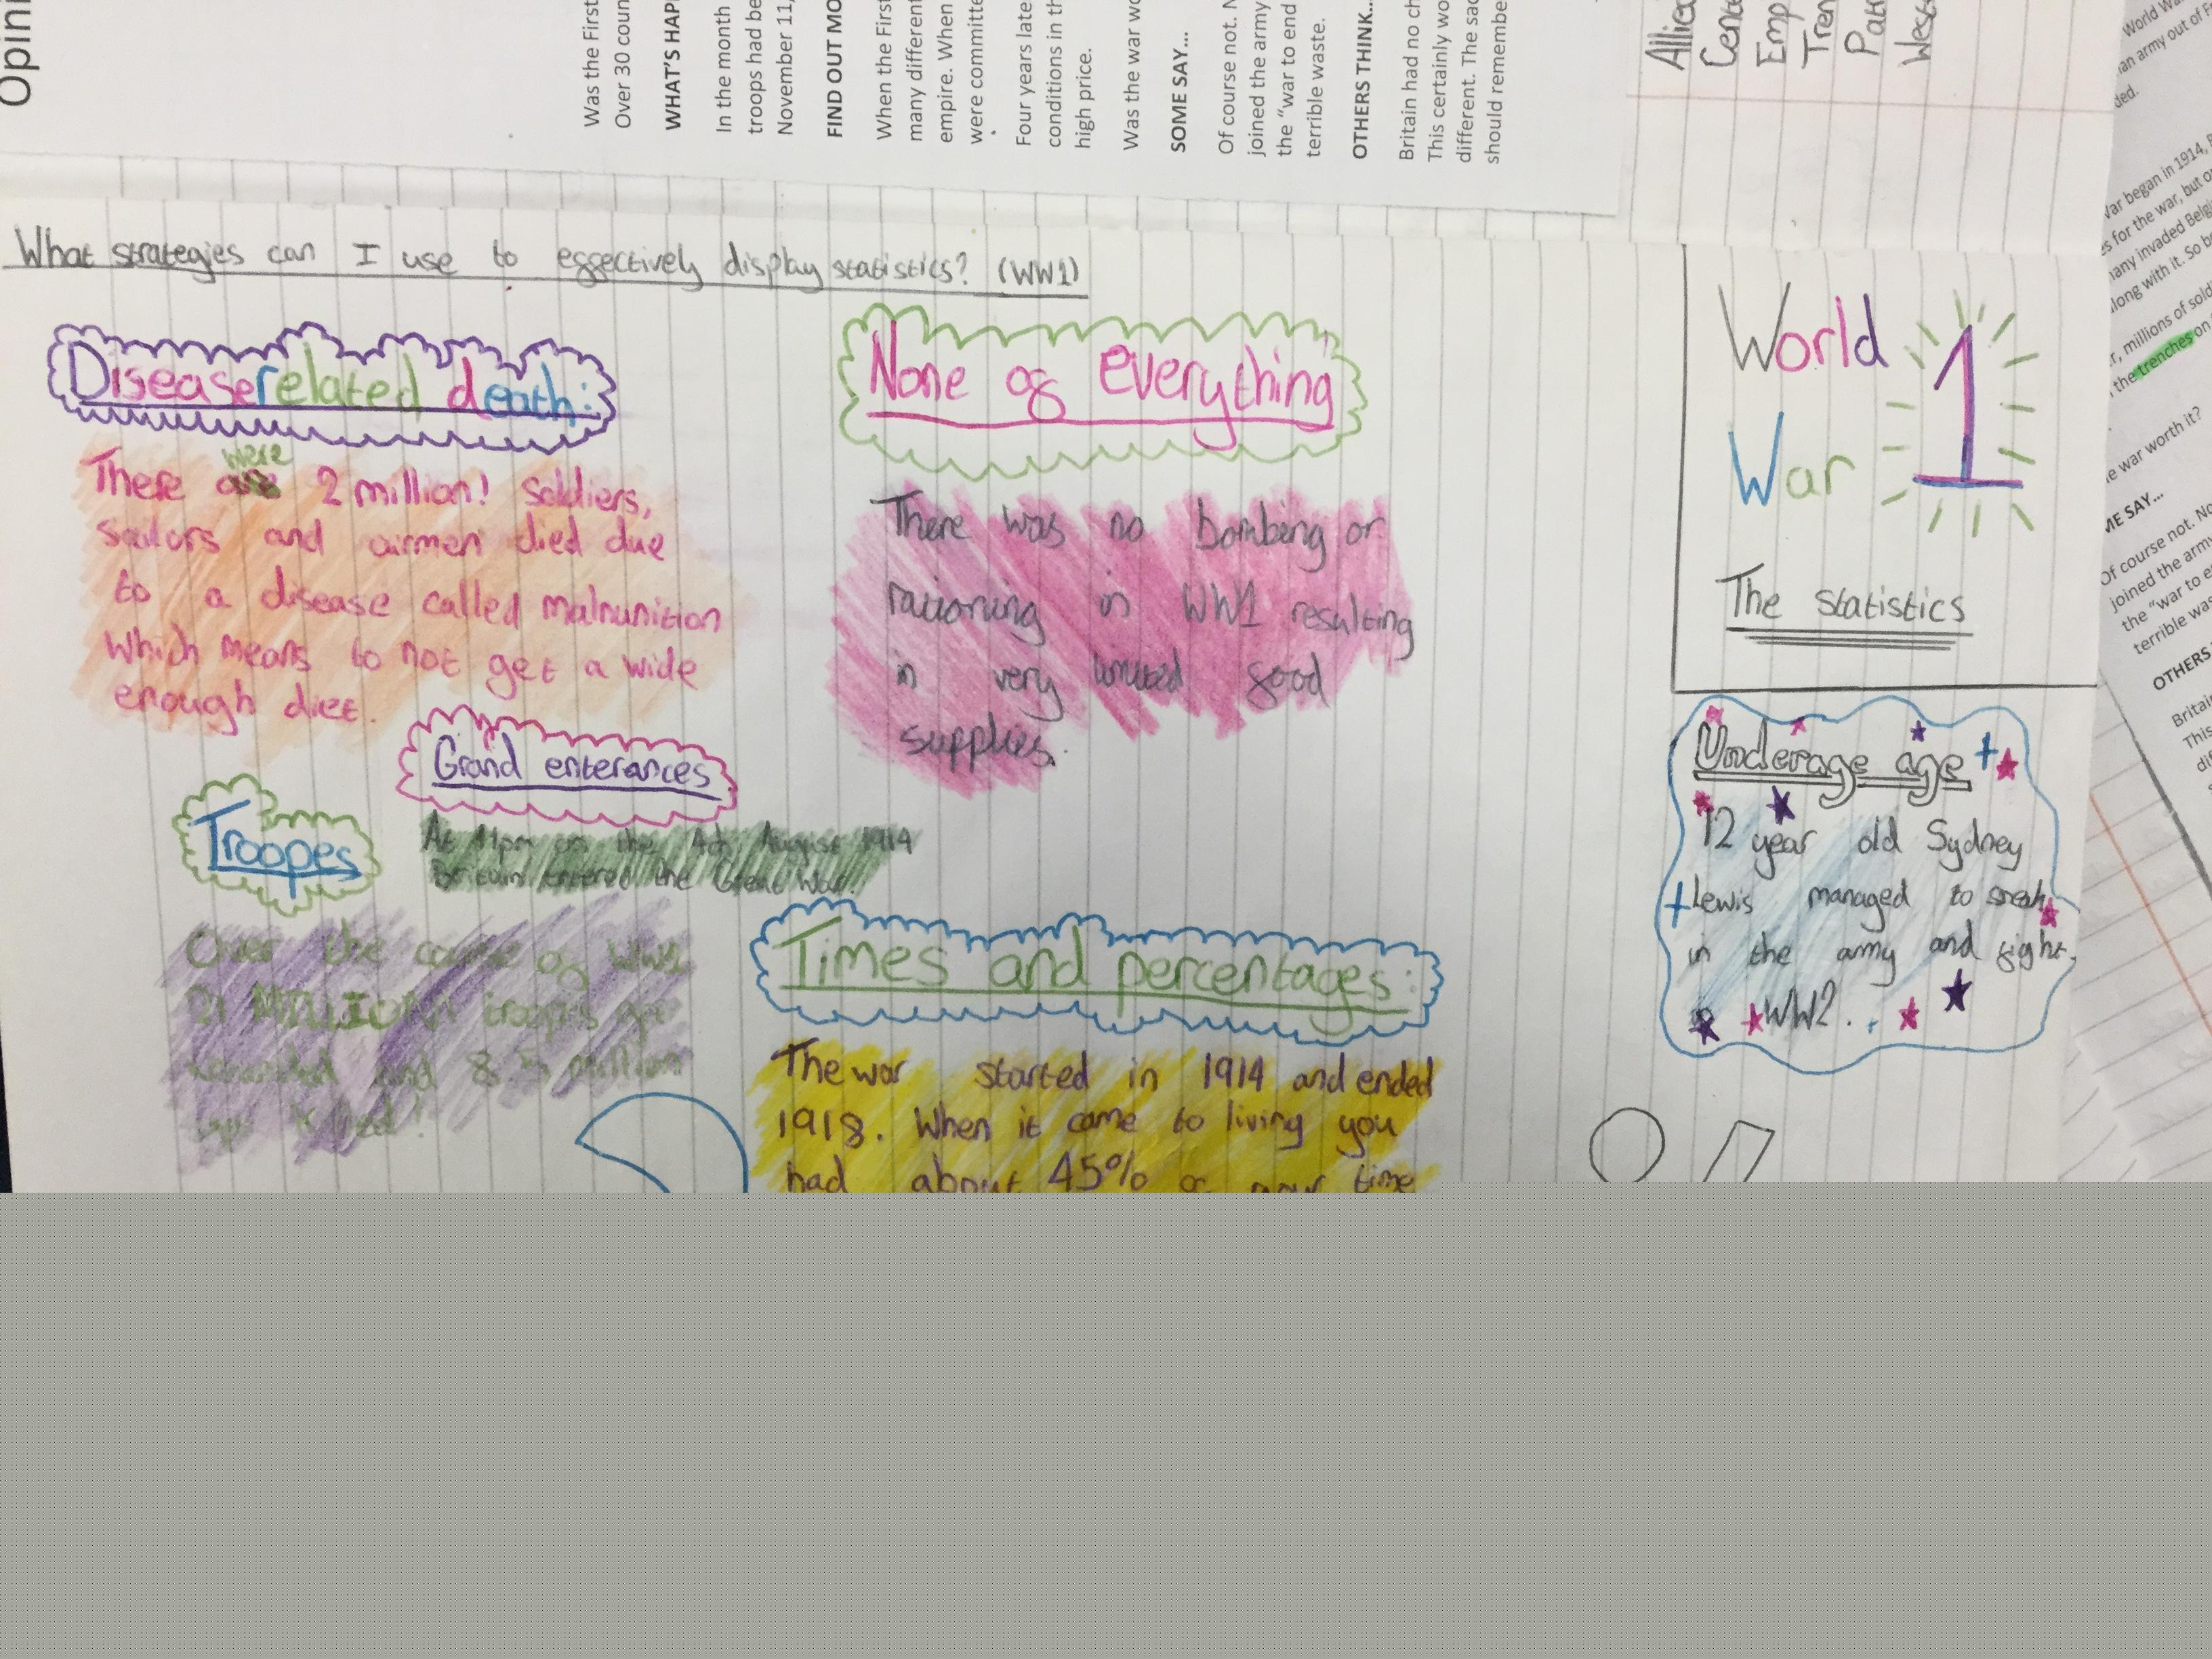 Opini
Was the First
Over 30 coun
WHAT'S HAP
In the month
troops had be
November 11,
FIND OUT MO
When the First
many different
empire. When
were committe
Four years late
conditions in th
high price.
Was the war wo
SOME SAY...
Of course not. N
joined the army
the "war to end
terrible waste.
OTHERS THINK...
Britain had no ch
This certainly wo
different. The sac
should remembe
Allied
Cen
Emp
Tren
Pat
West
What strategies can I use to effectively display statistics? (WW1)
Disease related death:
There were 2 million! soldiers,
sailors and airmen died due
to a disease called malnunition
which means to not get a wide
enough diet.
None of everything
There was no bombing or
rationing in WW1 resulting
in very limited food
supplies.
Grand enterances
At 11pm on the 4th August 1914
Britain entered the Great War.
Troopes
Over the course of WW1
21 MILLION troops got
wounded and 8.5 million
got killed!
Times and percentages:
The war started in 1914 and ended
1918. When it came to living you
had about 45% of your time
World
War 1
The statistics
Underage age
12 year old Sydney
Lewis managed to sneak
in the army and fight
WW2.
World Wa
an army out of F
ded.
War began in 1914, B
es for the war, but o
many invaded Belgi
along with it. So b
r, millions of soldi
the trenches on
e war worth it?
ME SAY...
Of course not. No
joined the army
the "war to e
terrible was
OTHERS
Britai
This
di